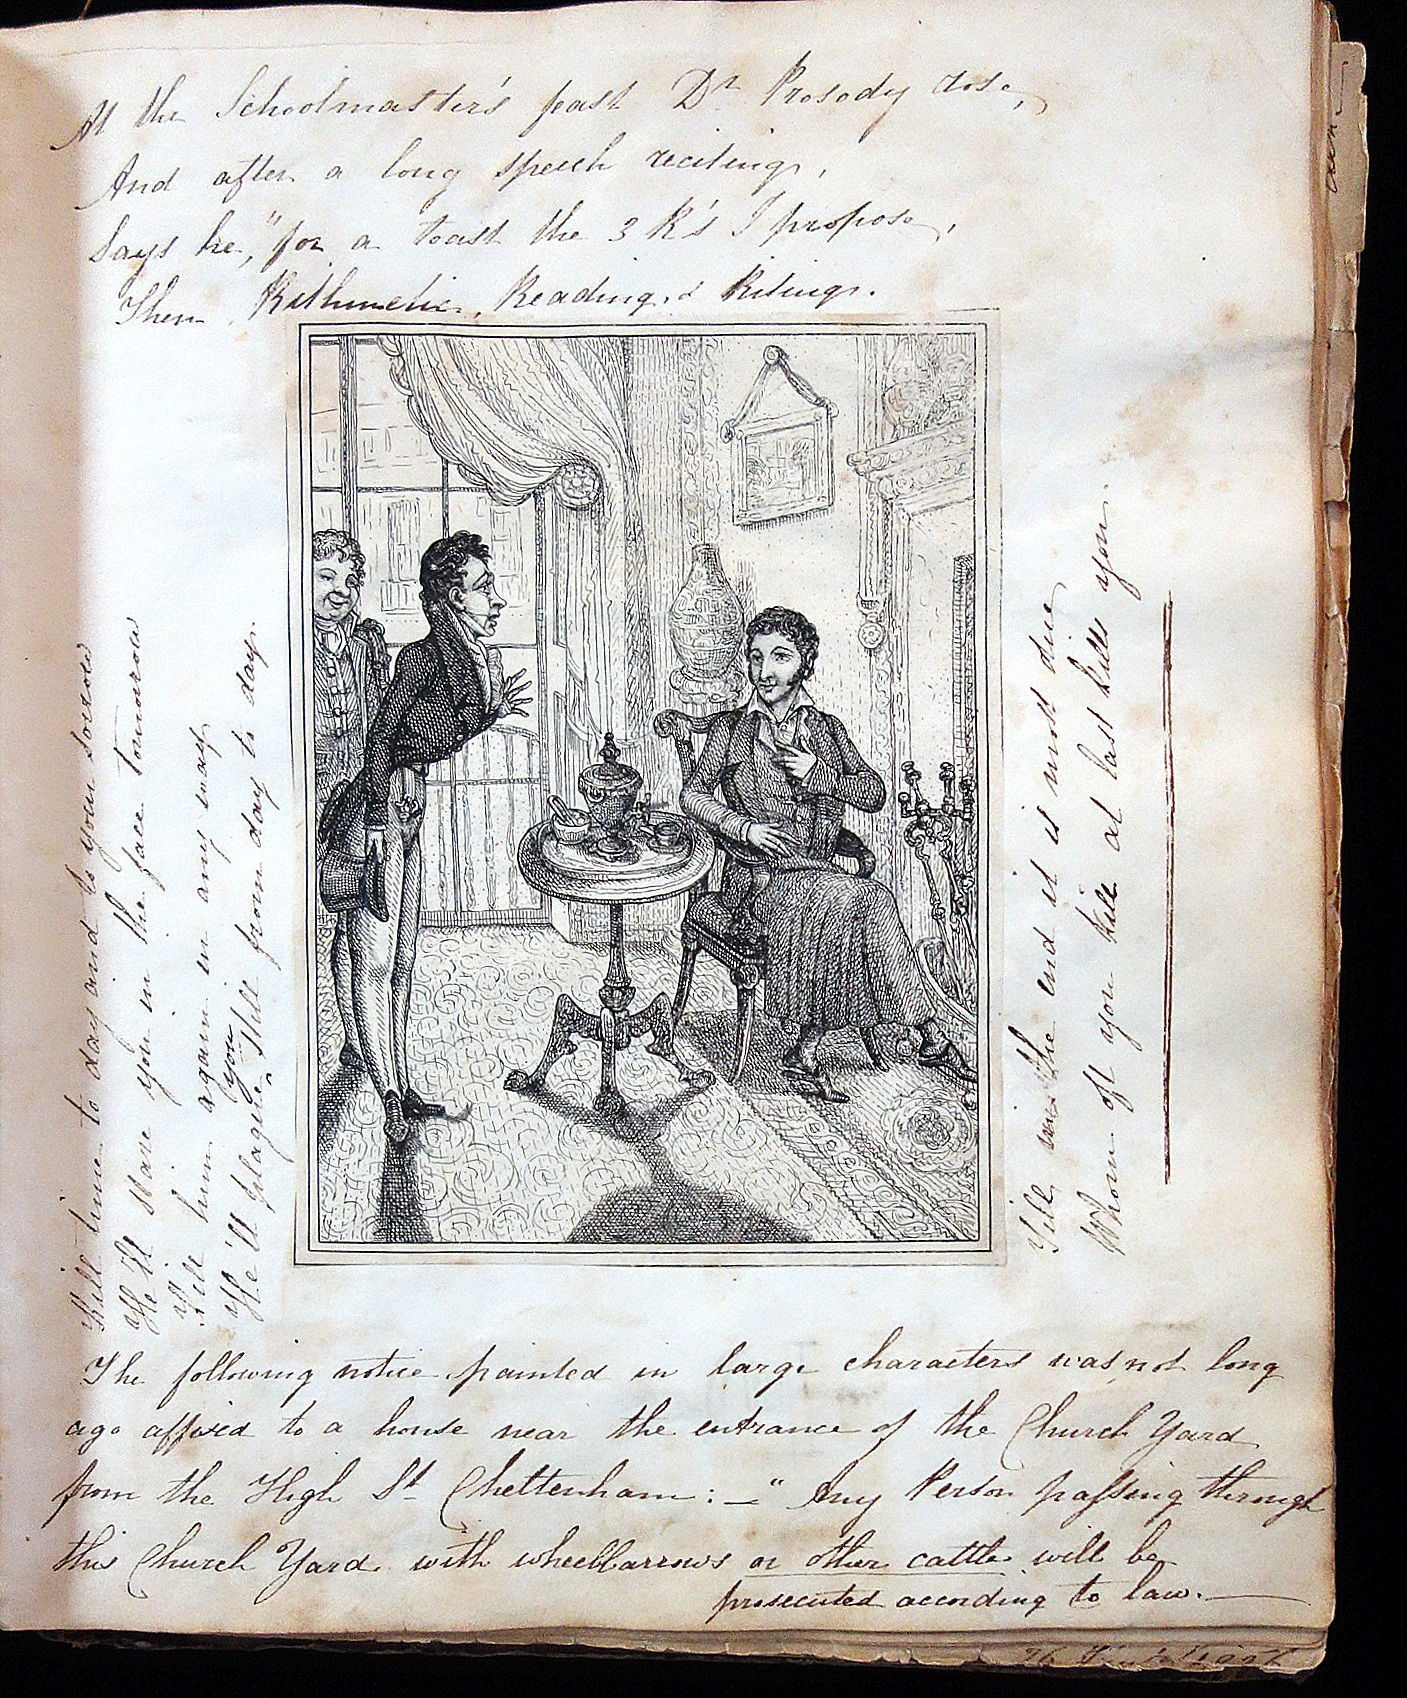 At the Schoolmaster's feast Dr Prosody rose,
And after a long speech reciting,
Says he, "for a toast the 3 R's I propose,
Then Rithmetic, Reading, & Riting.
Kill time to day and to your sorrow
He'll stare you in the face tomorow
Kill him again in any way
He'll plague you still from day to day.
Till in the end it is most due
Whom oft you kill at last kills you.
The following notice painted in large characters was not long
ago affixed to a house near the entrance of the Church Yard
from the High St Cheltenham: — "Any Person passing through
this Church Yard with wheelbarrows or other cattle will be
prosecuted according to law.